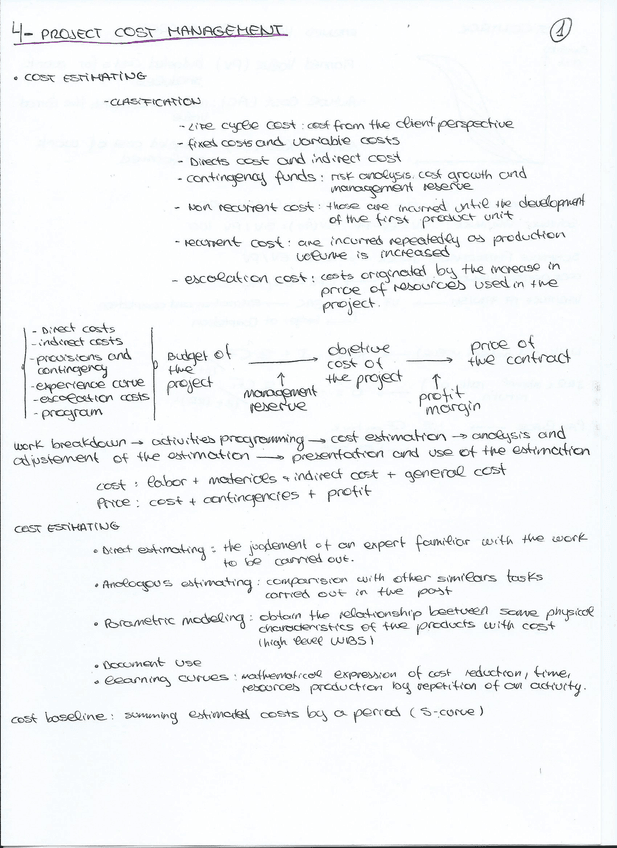 4- PROJECT COST MANAGEMENT
1
• COST ESTIMATING
-CLASIFICATION
- Life cycle cost : cost from the client perspective
- fixed costs and variable costs
- Directs cost and indirect cost
- contingency funds : risk analysis, cost growth and
management reserve
- Non recurrent cost : those are incurred until the development
of the first product unit
- recurrent cost : are incurred repeatedly as production
volume is increased
- escalation cost : costs originated by the increase in
price of resources used in the
project.
- Direct costs
- indirect costs
- provisions and
contingency
- experience curve
- escalation costs
- program
Budget of
the
project
→
↑
management
reserve
objetive
cost of
the project
→
↑
profit
margin
price of
the contract
work breakdown → activities programming → cost estimation → analysis and
adjustement of the estimation → presentation and use of the estimation
cost : labor + materials + indirect cost + general cost
Price : cost + contingencies + profit
COST ESTIMATING
• Direct estimating : the judgement of an expert familiar with the work
to be carried out.
• Analogous estimating : comparision with other similars tasks
carried out in the past
• Parametric modeling : obtain the relationship beetween some physical
characteristics of the products with cost
(high level WBS)
• Document use
• Learning curves : mathematical expression of cost reduction, time,
resources production by repetition of an activity.
cost baseline : summing estimated costs by a period (S-curve)